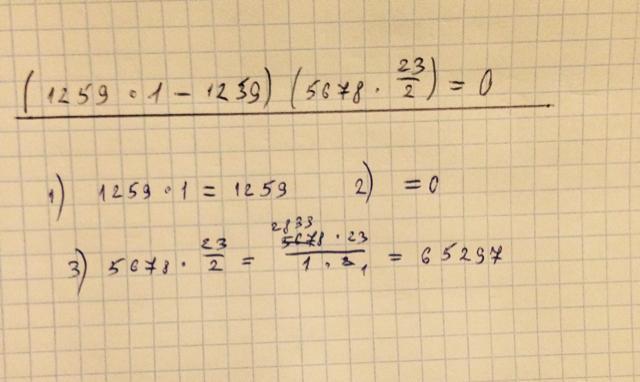 (1259 · 1 - 1259) (5678 · 23/2) = 0
1) 1259 · 1 = 1259 2) = 0
3) 5678 · 23/2 = 2833 5678 · 23 / 1 · 2 1 = 65297